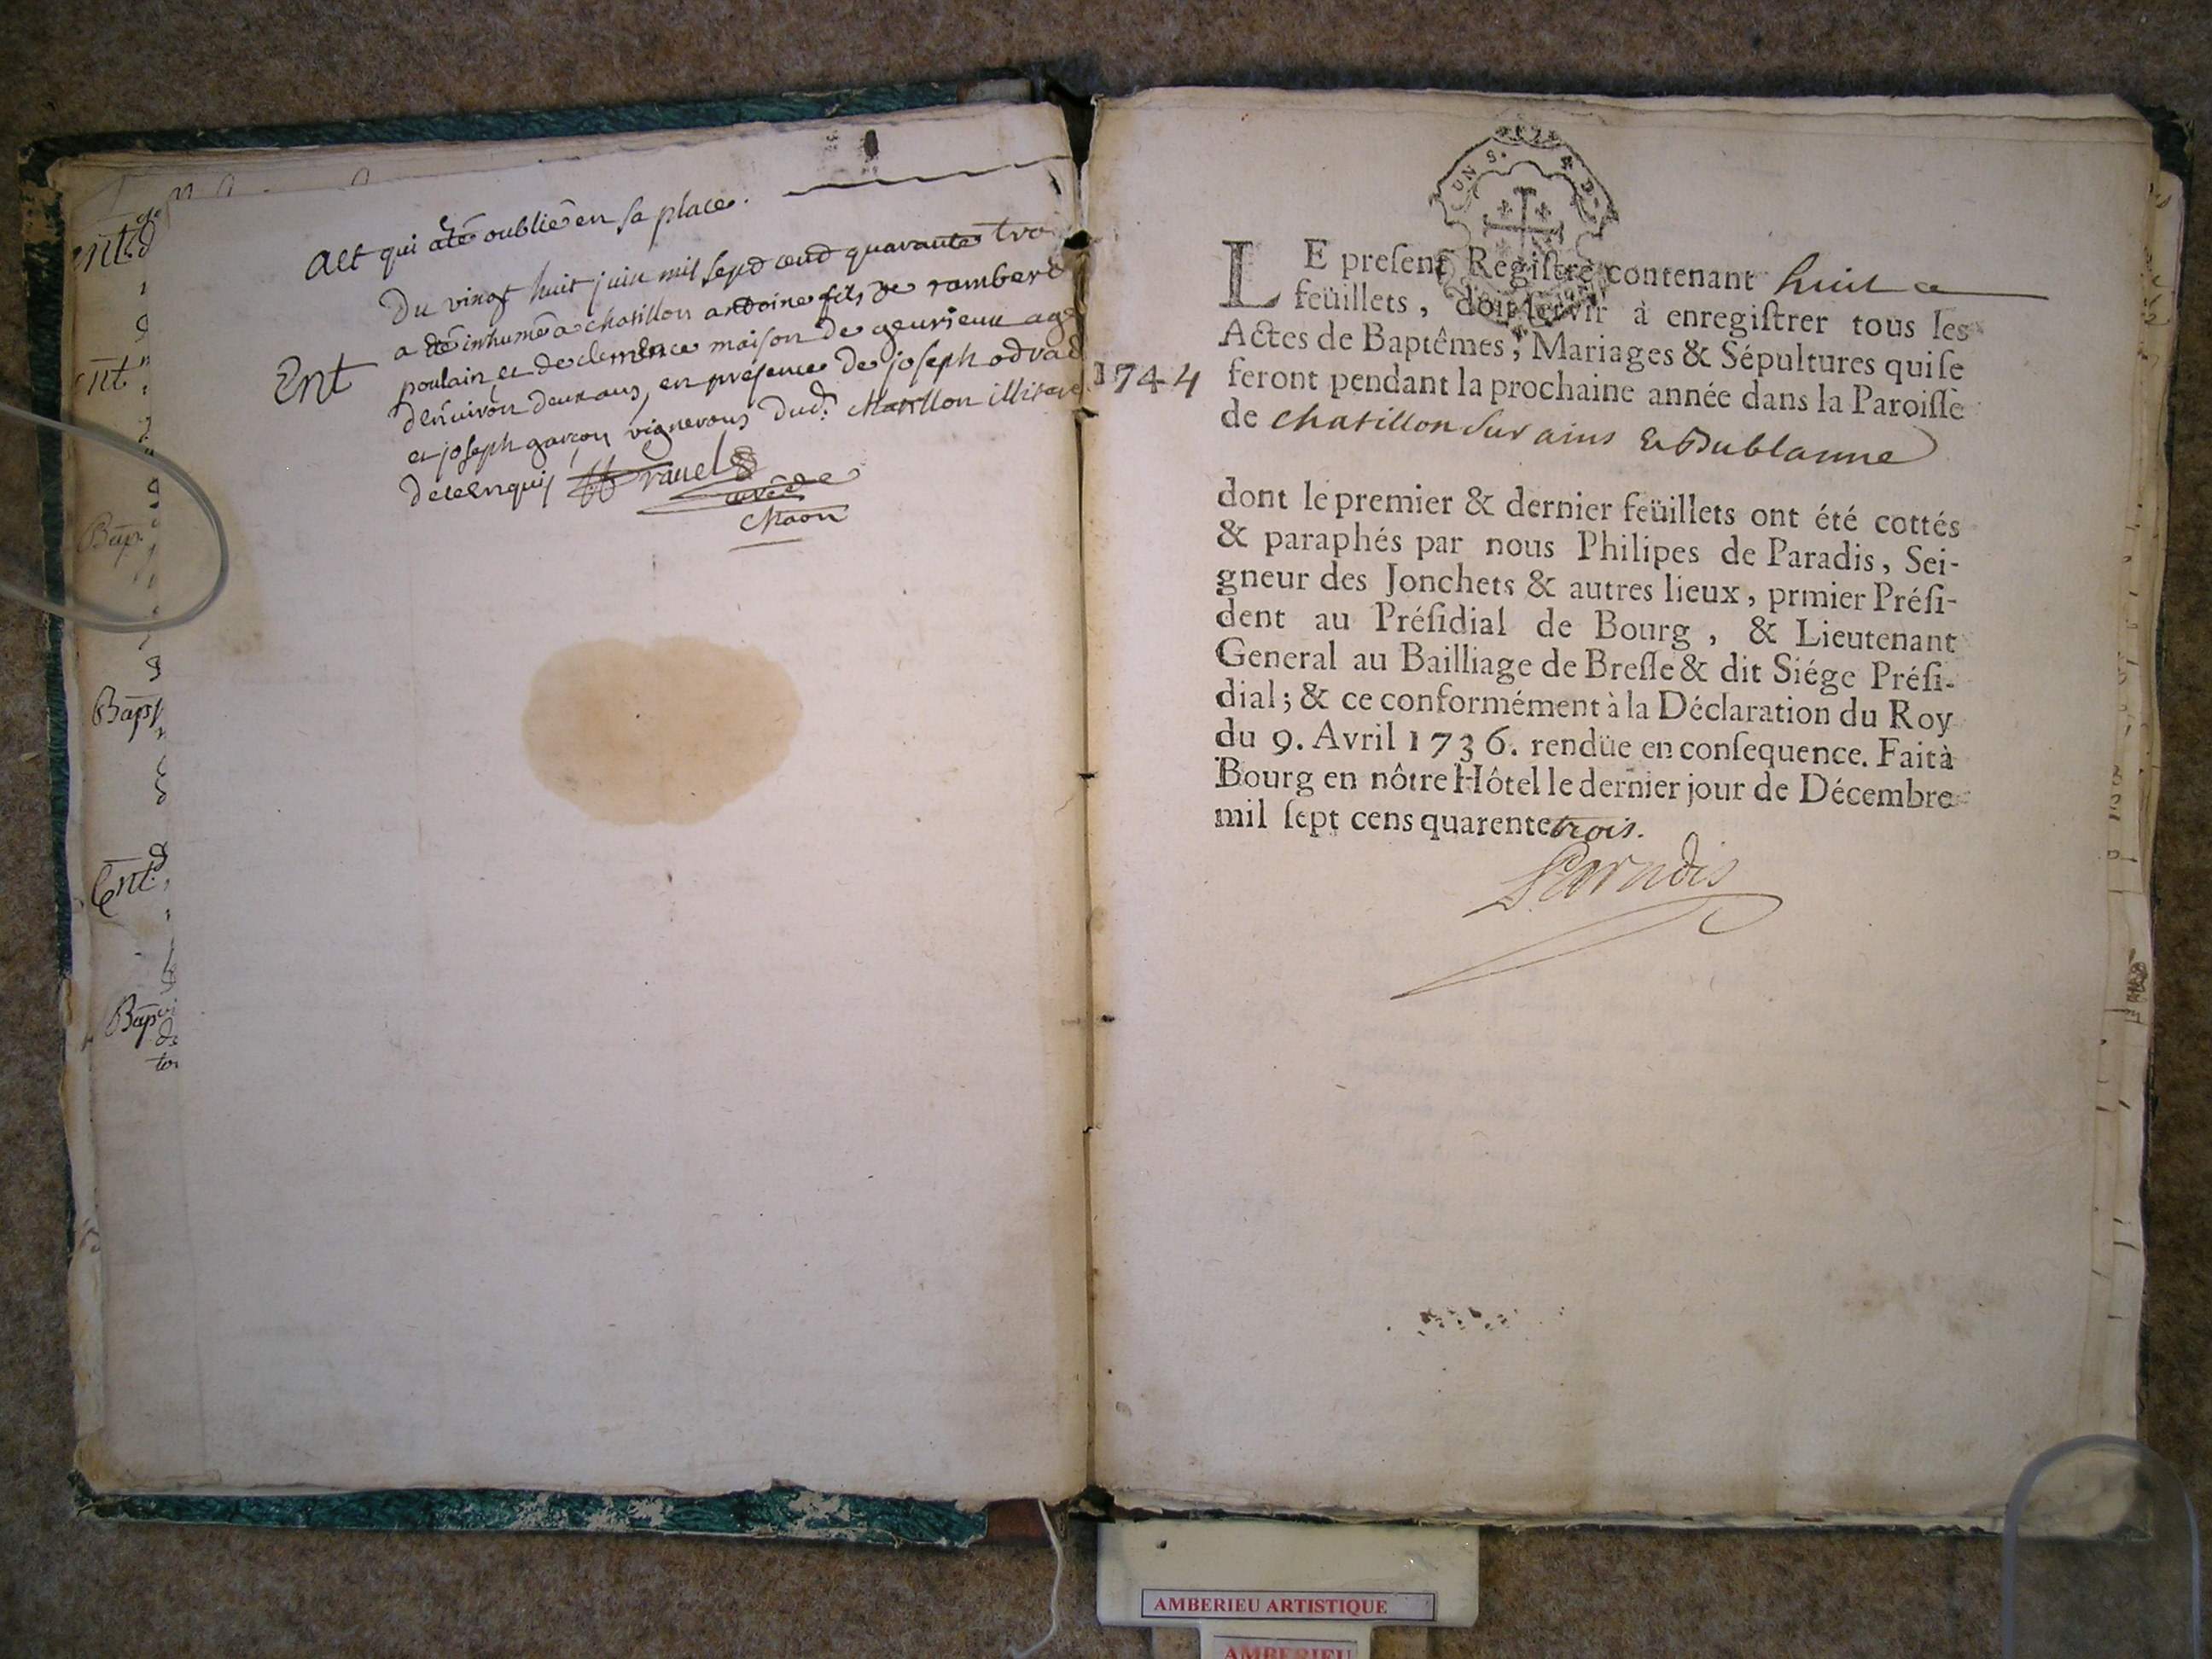 Act qui a été oublié en sa place.
Du vingt huit juin mil sept cent quarante troi
a été inhumé a chatillon antoine fils de rambert
Ent
poulain et de clemence maison de geurieux agé
denviron deux ans, en présence de joseph
et joseph garçon vignerons dud. chatillon illiteré
de ce enquis ravel
curé de
chaon
ent
ent
Bap
Bapt
Ent
Bap
1744
LE present Registre contenant huit
feüillets, doit servir à enregistrer tous les
Actes de Baptêmes, Mariages & Sépultures qui se
feront pendant la prochaine année dans la Paroisse
de chatillon sur ains & Bublanne
dont le premier & dernier feüillets ont été cottés
& paraphés par nous Philipes de Paradis, Sei-
gneur des Jonchets & autres lieux, prmier Prési-
dent au Présidial de Bourg, & Lieutenant
General au Bailliage de Bresse & dit Siége Prési-
dial; & ce conformément à la Déclaration du Roy
du 9. Avril 1736. rendüe en consequence. Fait à
Bourg en nôtre Hôtel le dernier jour de Décembre
mil sept cens quarente trois.
Paradis
AMBERIEU ARTISTIQUE
AMBERIEU